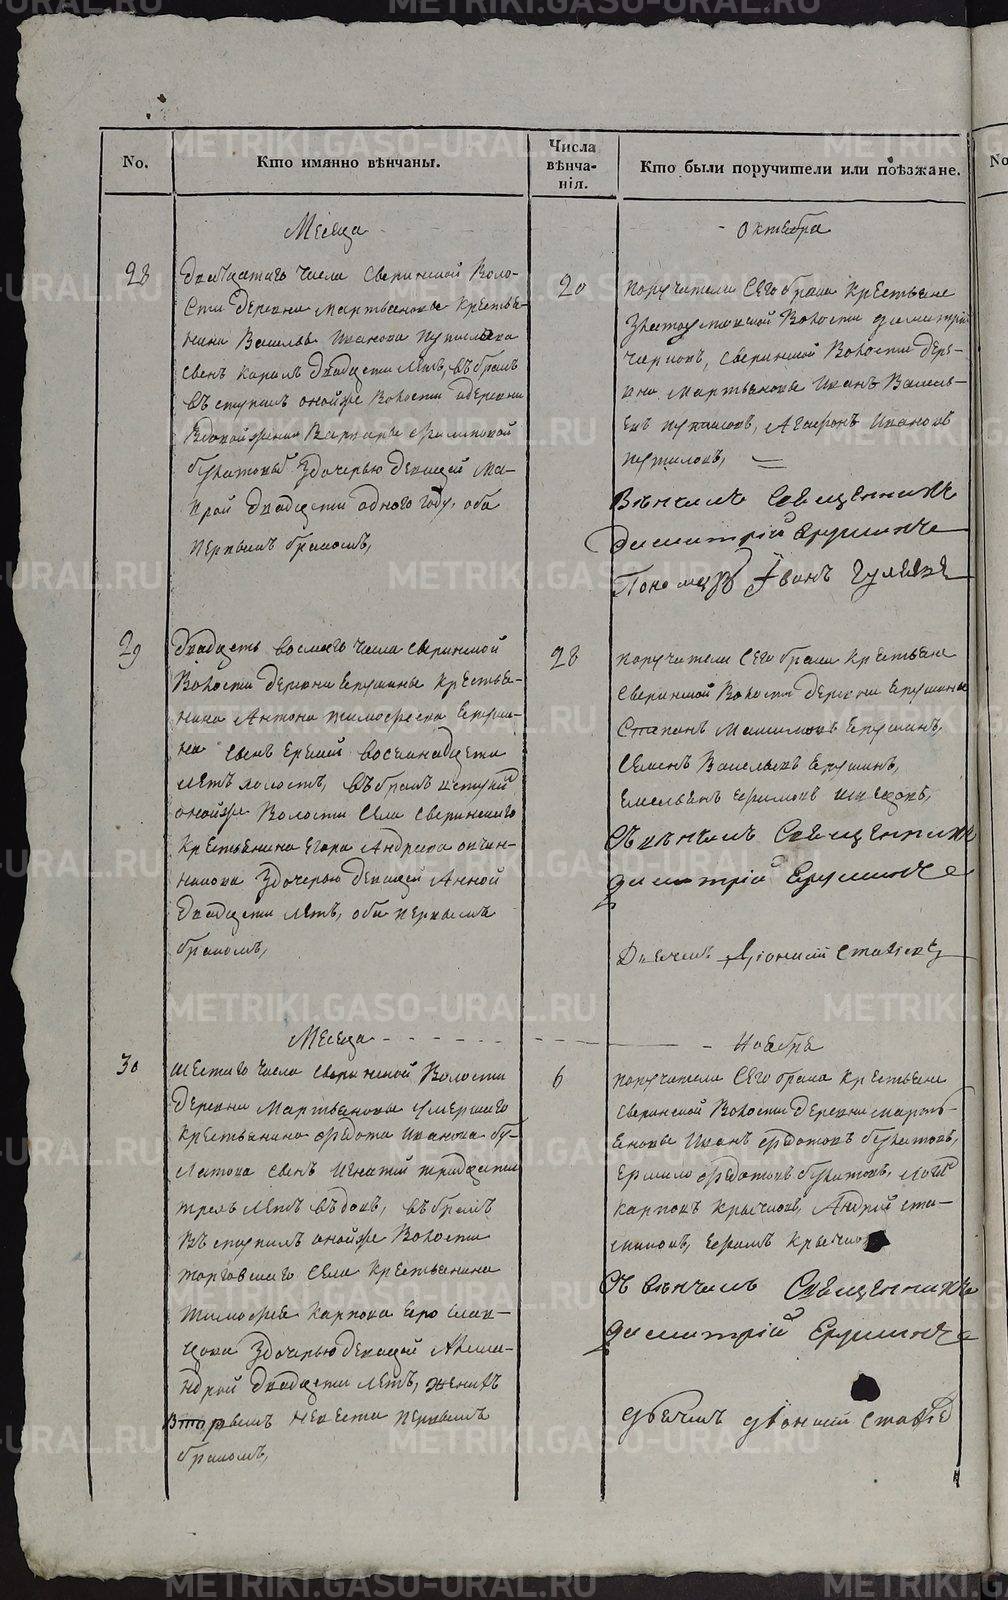 No.
Кто имянно вѣнчаны.
Числа
вѣнча-
нія.
Кто были поручители или поѣзжане.
No
Месеца
Октебра
28
дватцатаго числа Сверинской Воло-
сти деревни мартьяновы крестья-
нина Василья Иванова путилова
сынъ лѣтъ, въ бракъ
въ ступилъ онойже Волости деревни
Варвары
булатовы здочерью девицей Ма-
врой двадцети одного году, оба
первымъ бракомъ,
20
поручители Сего брака крестьяне
Волости димитрій
сверинской Волости дере-
вни мартьяновы Иванъ Василь-
евъ путиловъ, Агафонъ Ивановъ
путиловъ,
Вѣнчалъ Священникъ
димитрій Ерушинъ
Пономарь Іванъ Гуляевъ
29
двадцеть восмаго числа сверинской
Волости деревни Ерушины крестья-
нина Антона тимофеева Еруши-
на сынъ восемнадцети
лѣтъ холостъ, въ бракъ вступил
онойже Волости Села сверинскаго
крестьянина Егора Андреева овчин-
никова здочерью девицей Анной
двадцети лѣтъ, оба первымъ
бракомъ,
28
поручители Сего брака крестьяне
сверинской Волости деревни Ерушины
Степанъ Максимовъ Ерушинъ,
Семенъ Васильевъ Ерушинъ,
Емельянъ Ефимовъ швецовъ,
Съвѣнчалъ Священникъ
димитрій Ерушинъ
Дьечикъ Діонисій
Месеца
Ноебре
30
шестаго числа сверинской Волости
деревни Мартьяновы умершаго
крестьянина федота Иванова бу-
латова сынъ Игнатій тридцети
трехъ лѣтъ въдовъ, въ бракъ
въ ступилъ онойже Волости
торговскаго села крестьянина
тимофея карпова
здочерью девицей Алекса-
ндрой двадцети лѣтъ, женихъ
вторымъ невеста первымъ
бракомъ,
6
поручители Сего брака крестьяне
сверинской Волости деревни марть-
еновы Иванъ федотовъ булатовъ,
федотовъ булатовъ,
карповъ Андрей
Ефимъ
Съвѣнчалъ Священникъ
димитрій Ерушинъ
дьечикъ діонисій
METRIKI.GASO-URAL.RU